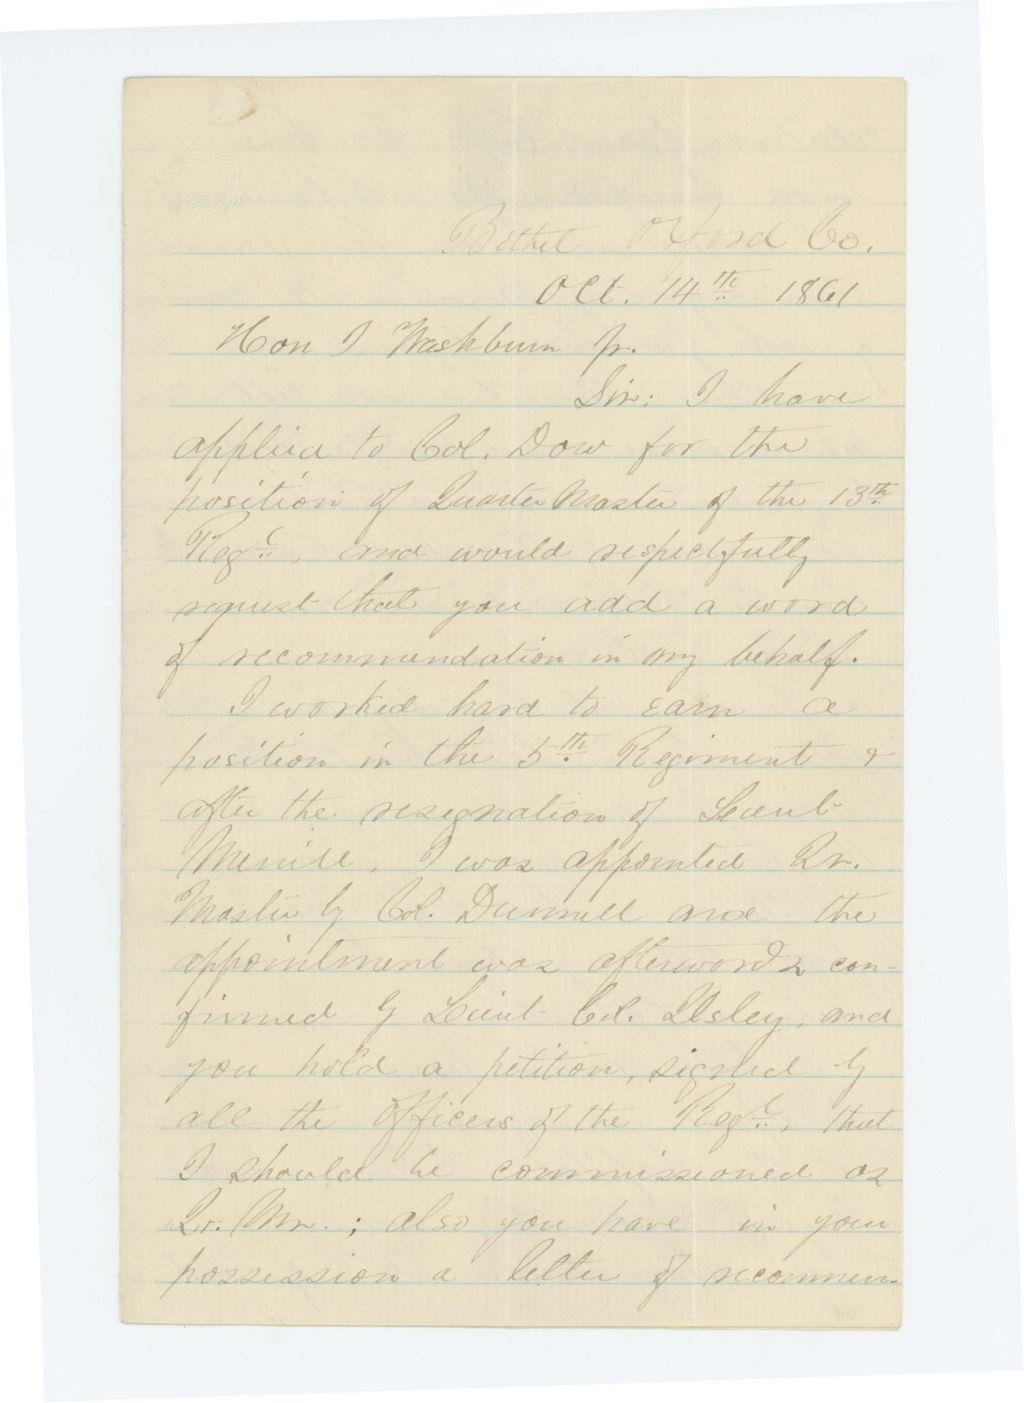 Bethel Oxford Co.
Oct. 14th 1861
Hon I Washburn Jr.
Sir: I have
applied to Col. Dow for the
position of Quarter Master of the 13th
Regt, and would respectfully
request that you add a word
of recommendation in my behalf.
I worked hard to earn a
position in the 5th Regiment &
after the resignation of Lieut
Merrill, I was appointed Qr.
Master by Col. Dunnell and the
appointment was afterwards con-
firmed by Lieut Col. Ilsley, and
you hold a petition, signed by
all the officers of the Regt, that
I should be commissioned as
Qr. Mr.; also you have in your
possession a letter of recommen-